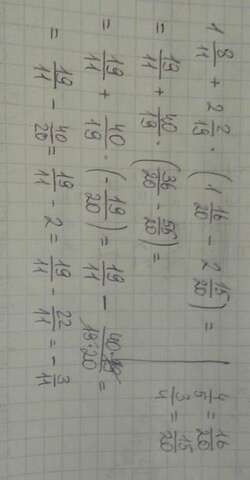 1 8/11 + 2 2/19 · (1 16/20 - 2 15/20) =
= 19/11 + 40/19 · (36/20 - 55/20) =
= 19/11 + 40/19 · (-19/20) = 19/11 - 40·19/19·20 =
= 19/11 - 40/20 = 19/11 - 2 = 19/11 - 22/11 = -3/11
4/5 = 16/20
3/4 = 15/20